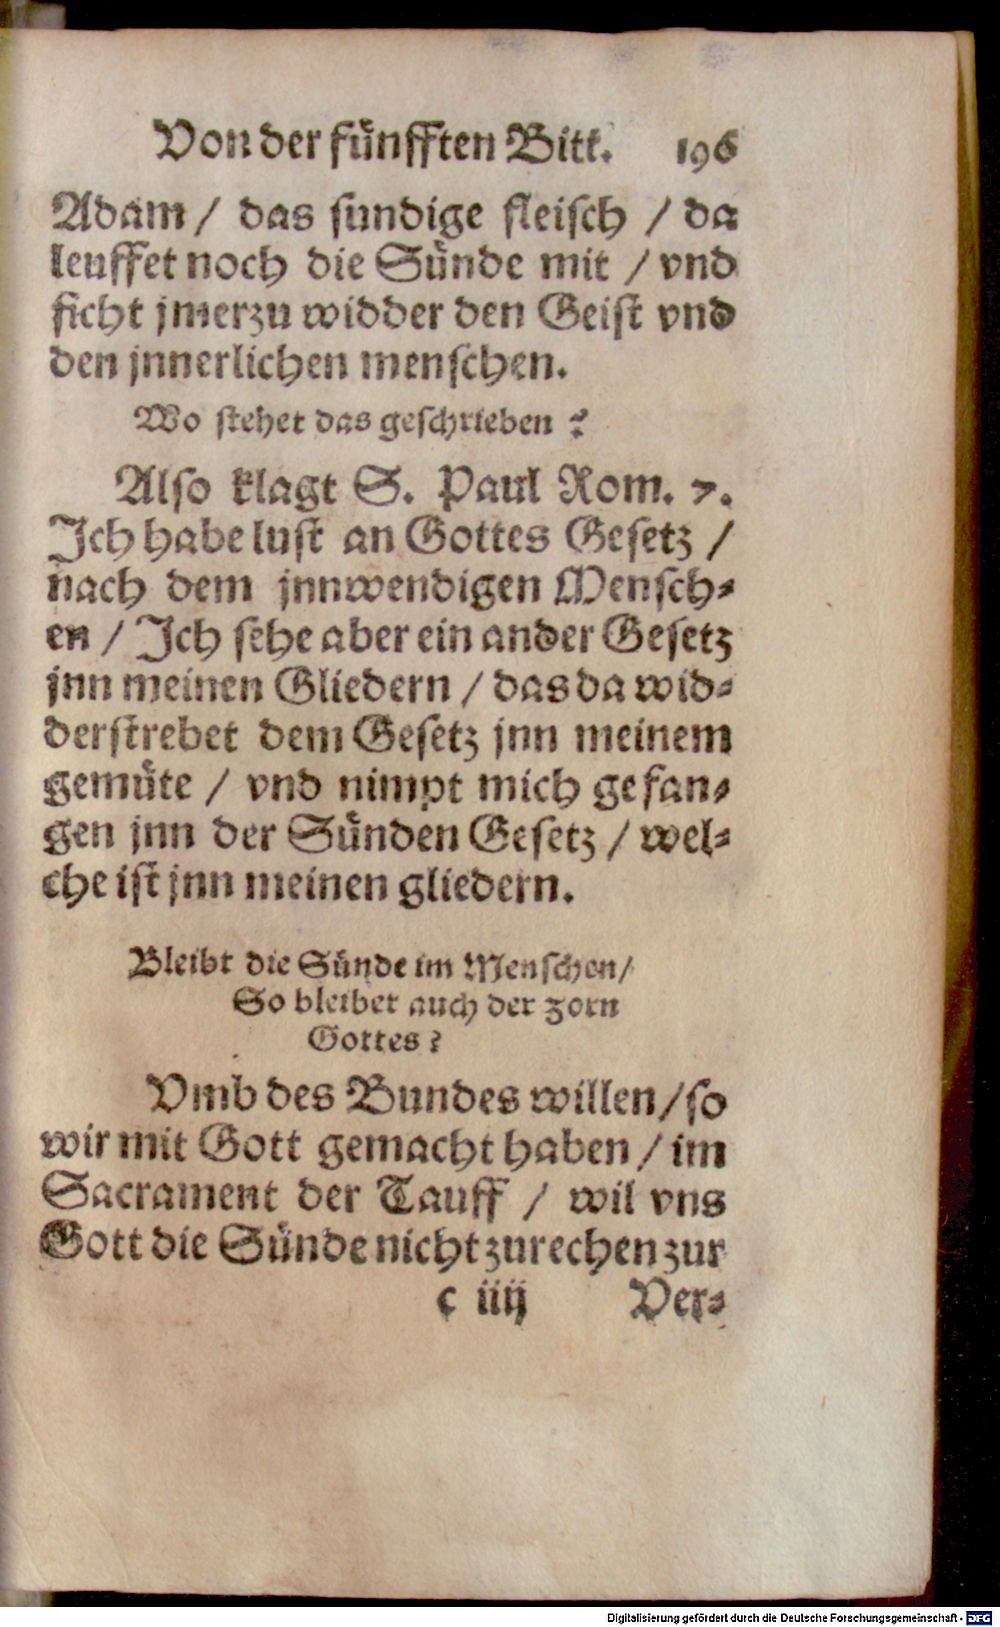 Von der fünfften Bitt. 196
Adam / das sundige fleisch / da
leuffet noch die Sünde mit / vnd
ficht jmerzu widder den Geist vnd
den jnnerlichen menschen.
Wo stehet das geschrieben ?
Also klagt S. Paul Rom. 7.
Ich habe lust an Gottes Gesetz /
nach dem jnnwendigen Mensch-
en / Ich sehe aber ein ander Gesetz
jnn meinen Gliedern / das da wid-
derstrebet dem Gesetz jnn meinem
gemüte / vnd nimpt mich gefan-
gen jnn der Sünden Gesetz / wel-
che ist jnn meinen gliedern.
Bleibt die Sünde im Menschen/
So bleibet auch der zorn
Gottes ?
Vmb des Bundes willen/so
wir mit Gott gemacht haben / im
Sacrament der Tauff / wil vns
Gott die Sünde nicht zurechen zur
c iiij Ver-
Digitalisierung gefördert durch die Deutsche Forschungsgemeinschaft - DFG